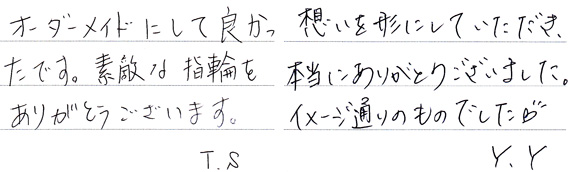 オーダーメイドにして良かっ
たです。素敵な指輪を
ありがとうございます。
T.S
想いを形にしていただき、
本当にありがとうございました。
イメージ通りのものでしたが
Y.Y